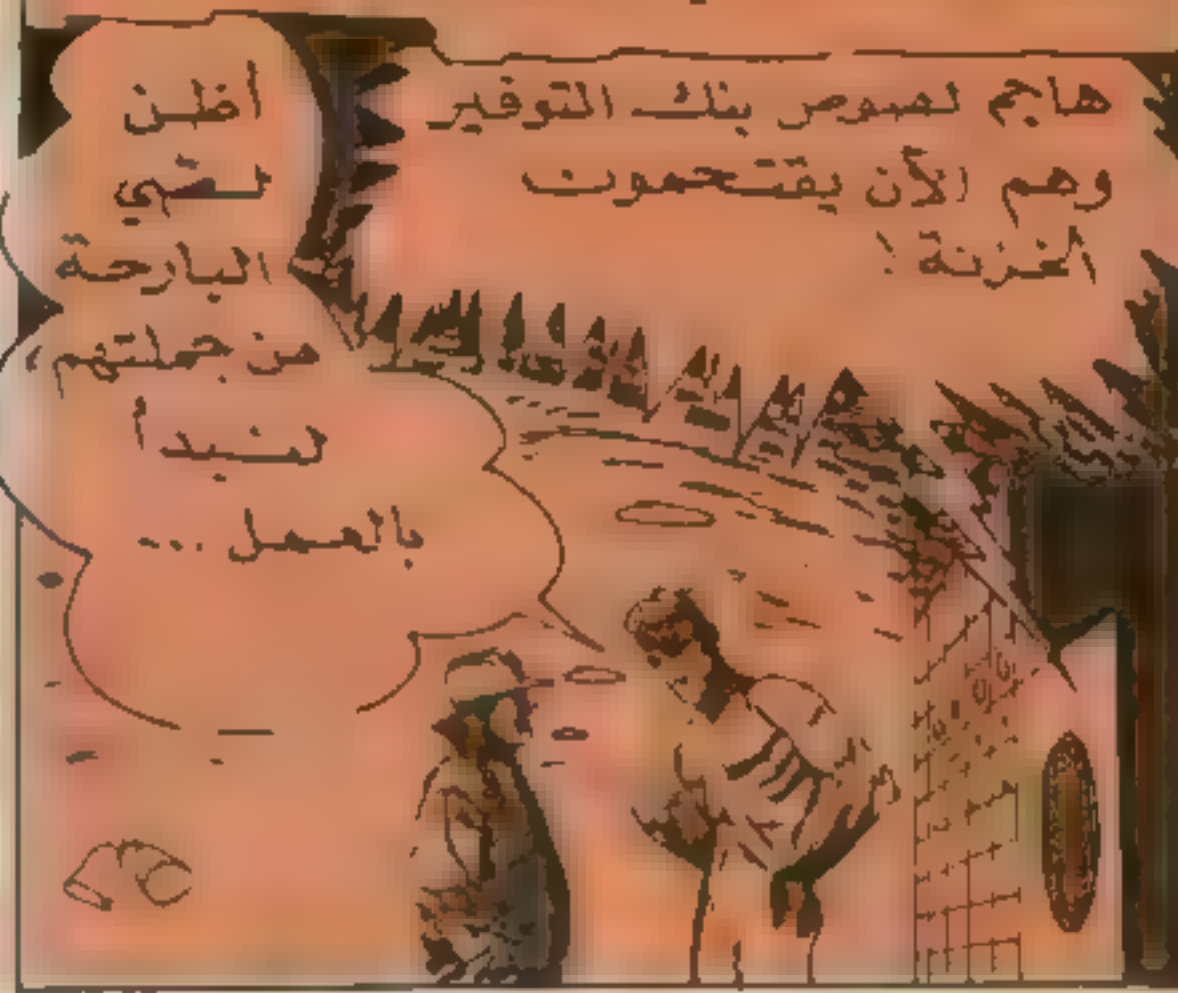 هاجم لصوص بنك التوفير
وهم الآن يقتحمون
الخزنة !
أظن
لصي
البارحة
من جملتهم ،
لنبدأ
بالعمل ...